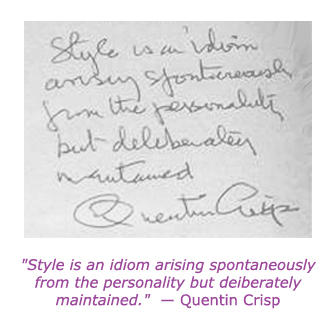 Style is an idiom
arising spontaneously
from the personality
but deliberately
maintained
Quentin Crisp
"Style is an idiom arising spontaneously
from the personality but deiberately
maintained." — Quentin Crisp